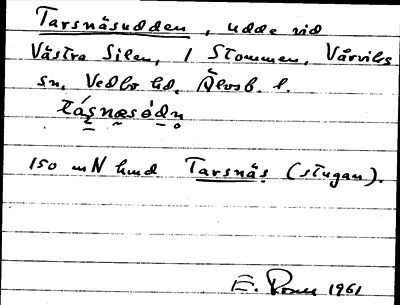 Tarsnäsudden, udde vid
Västra Silen, 1 Stommen, Vårviks
sn, Vedbo hd, Älvsb. l.
tásnæsòdn
150 m N hmd Tarsnäs (stugan).
E. 1961